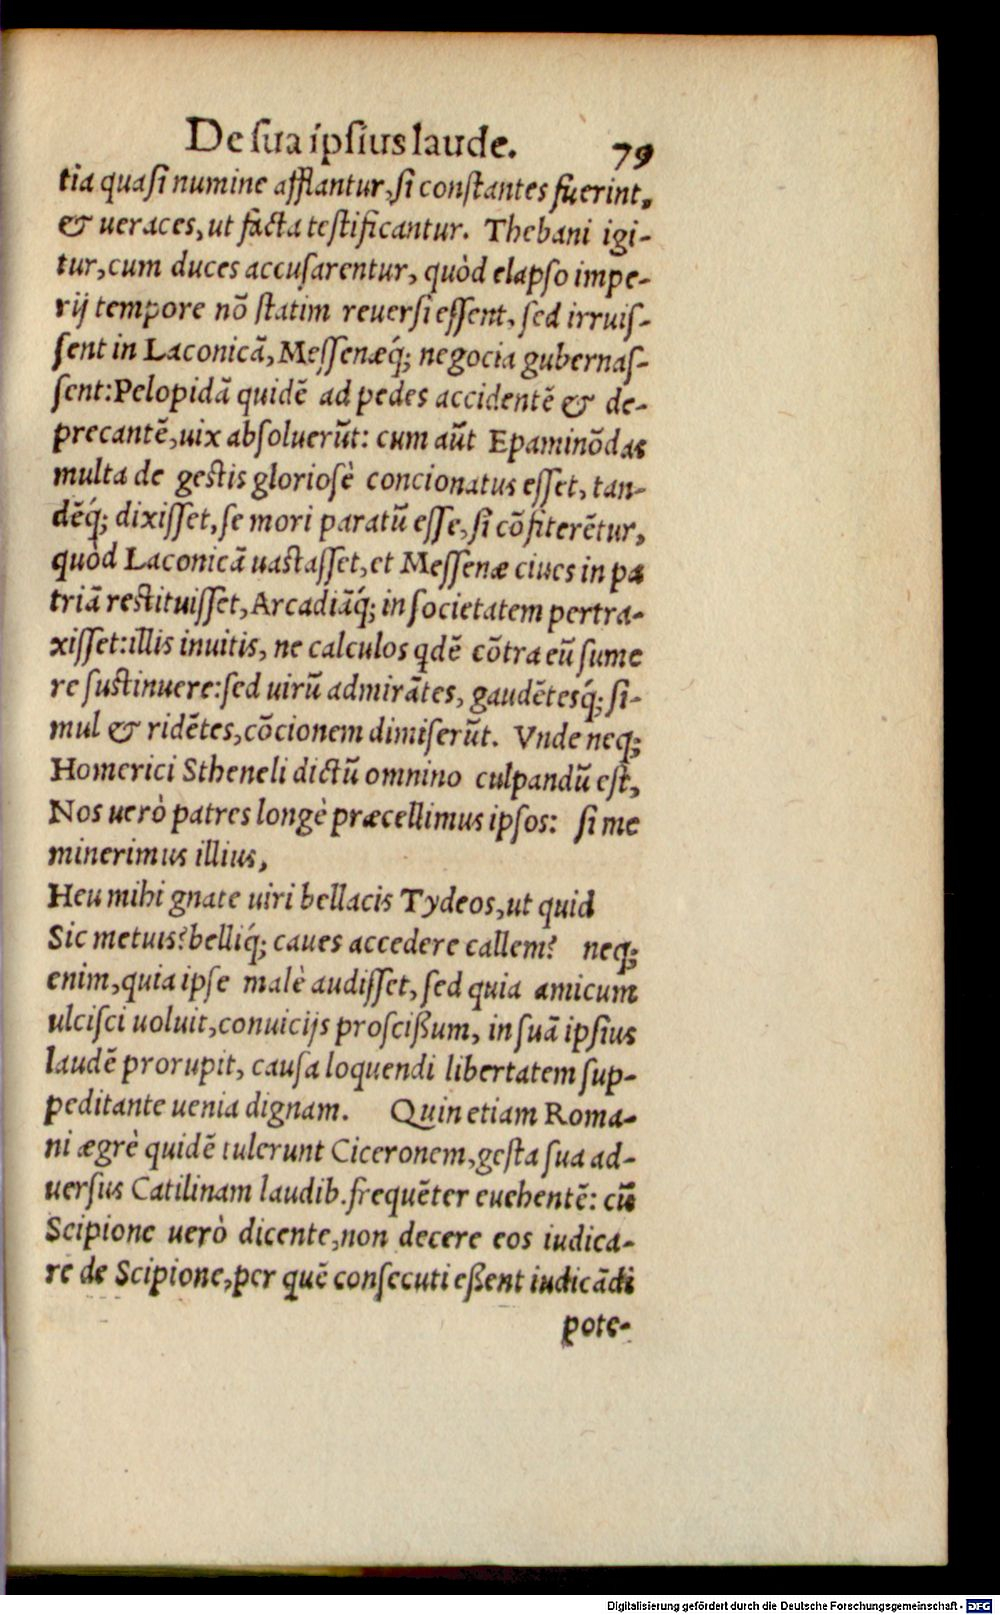 De sua ipsius laude. 79
tia quasi numine afflantur, si constantes fuerint,
& ueraces, ut facta testificantur. Thebani igi-
tur, cum duces accusarentur, quòd elapso impe-
rij tempore nõ statim reuersi essent, sed irruis-
sent in Laconicã, Messenæq́; negocia gubernas-
sent: Pelopidã quidẽ ad pedes accidentẽ & de-
precantẽ, uix absoluerũt: cum aũt Epaminõdas
multa de gestis gloriosè concionatus esset, tan-
dẽq́; dixisset, se mori paratũ esse, si cõfiterẽtur,
quòd Laconicã uastasset, et Messenæ ciues in pa
triã restituisset, Arcadiãq́; in societatem pertra-
xisset: illis inuitis, ne calculos qdẽ cõtra eũ sume
re sustinuere: sed uirũ admirãtes, gaudẽtesq́; si-
mul & ridẽtes, cõcionem dimiserũt. Vnde neq;
Homerici Stheneli dictũ omnino culpandũ est,
Nos uerò patres longè præcellimus ipsos: si me
minerimus illius,
Heu mihi gnate uiri bellacis Tydeos, ut quid
Sic metuis? belliq́; caues accedere callem? neq;
enim, quia ipse malè audisset, sed quia amicum
ulcisci uoluit, conuicijs proscißum, in suã ipsius
laudẽ prorupit, causa loquendi libertatem sup-
peditante uenia dignam. Quin etiam Roma-
ni ægrè quidẽ tulerunt Ciceronem, gesta sua ad-
uersus Catilinam laudib. frequẽter euehentẽ: cũ
Scipione uerò dicente, non decere eos iudica-
re de Scipione, per quẽ consecuti eßent iudicãdi
pote-
Digitalisierung gefördert durch die Deutsche Forschungsgemeinschaft - DFG